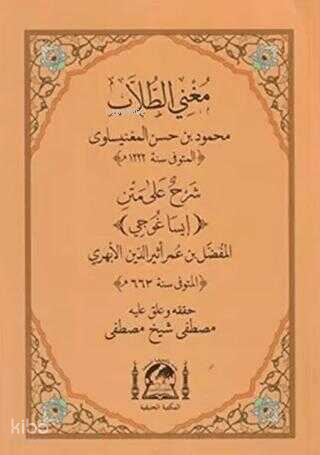 مُغْنِي الطُّلَّابِ
محمود بن حسن المغنيساوى
﴿المتوفى سنة ١٢٢٢ هـ﴾
شَرْحٌ عَلَى مَتْنِ
﴿إيسَاغُوجِي﴾
المُفَضَّل بن عُمَر أثيرالدّين الأبهَري
﴿المتوفى سنة ٦٦٣ هـ﴾
حققه وعلق عليه
مصطفى شيخ مصطفى
المكتبة الحنيفية
kitap